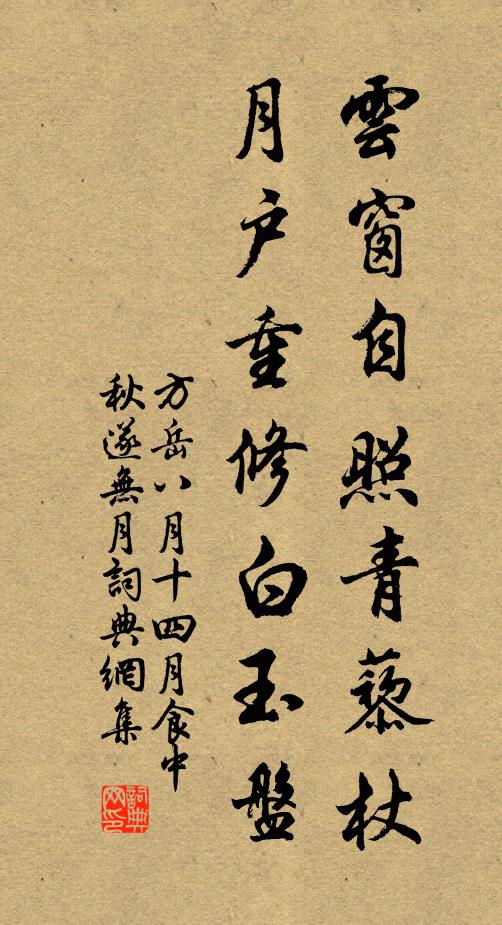 雲窗自照青藜杖
月户重修白玉盤
方岳八月十四月食中
秋遂無月詞典網集
詞典
网印